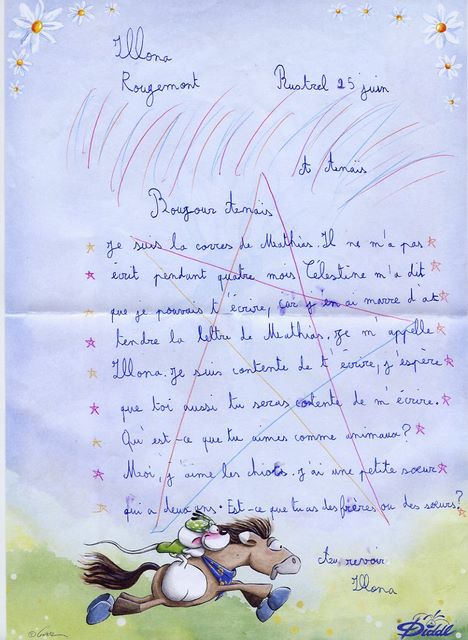 Illona
Rougemont Rustrel 25 juin
A Anaïs
Boujour Anaïs
Je suis la corres de Mathias. Il ne m'a pas
écrit pendant quatre mois Célestine m'a dit
que je pouvais t'écrire, car j'en ai marre d'at
tendre la lettre de Mathias. Je m'appelle
Illona. Je suis contente de t'écrire, j'espère
que toi aussi tu seras contente de m'écrire.
Qu'est-ce que tu aimes comme animaux?
Moi, j'aime les chiots. J'ai une petite sœur
qui a deux ans. Est-ce que tu as des frères ou des sœurs?
Au revoir
Illona
Diddl